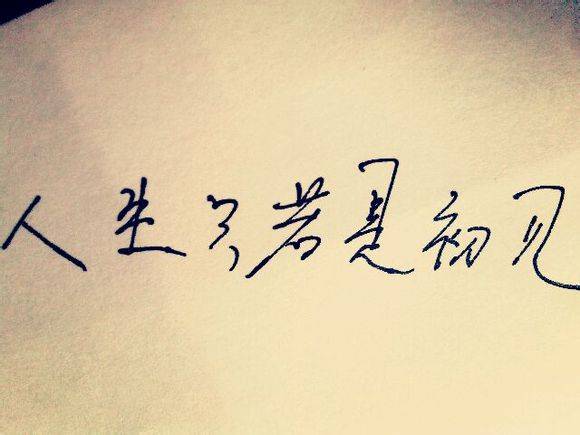 人生只若是初见